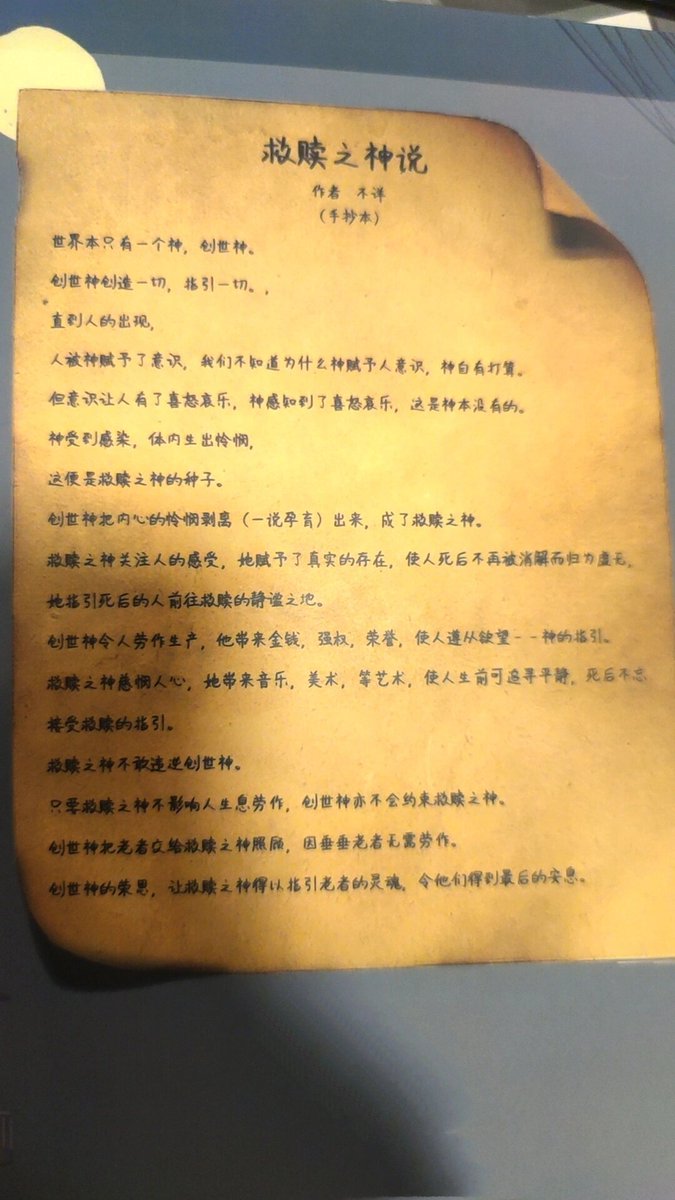 救赎之神说
作者 不详
(手抄本)
世界本只有一个神，创世神。
创世神创造一切，指引一切。，
直到人的出现，
人被神赋予了意识，我们不知道为什么神赋予人意识，神自有打算。
但意识让人有了喜怒哀乐，神感知到了喜怒哀乐，这是神本没有的。
神受到感染，体内生出怜悯，
这便是救赎之神的种子。
创世神把内心的怜悯剥离（一说孕育）出来，成了救赎之神。
救赎之神关注人的感受，她赋予了真实的存在，使人死后不再被消解而归为虚无，
她指引死后的人前往救赎的静谧之地。
创世神令人劳作生产，他带来金钱，强权，荣誉，使人遵从欲望--神的指引。
救赎之神慈悯人心，她带来音乐，美术，等艺术，使人生前可追寻平静，死后不忘
接受救赎的指引。
救赎之神不敢违逆创世神。
只要救赎之神不影响人生息劳作，创世神亦不会约束救赎之神。
创世神把老者交给救赎之神照顾，因垂垂老者无需劳作。
创世神的荣恩，让救赎之神得以指引老者的灵魂，令他们得到最后的安息。